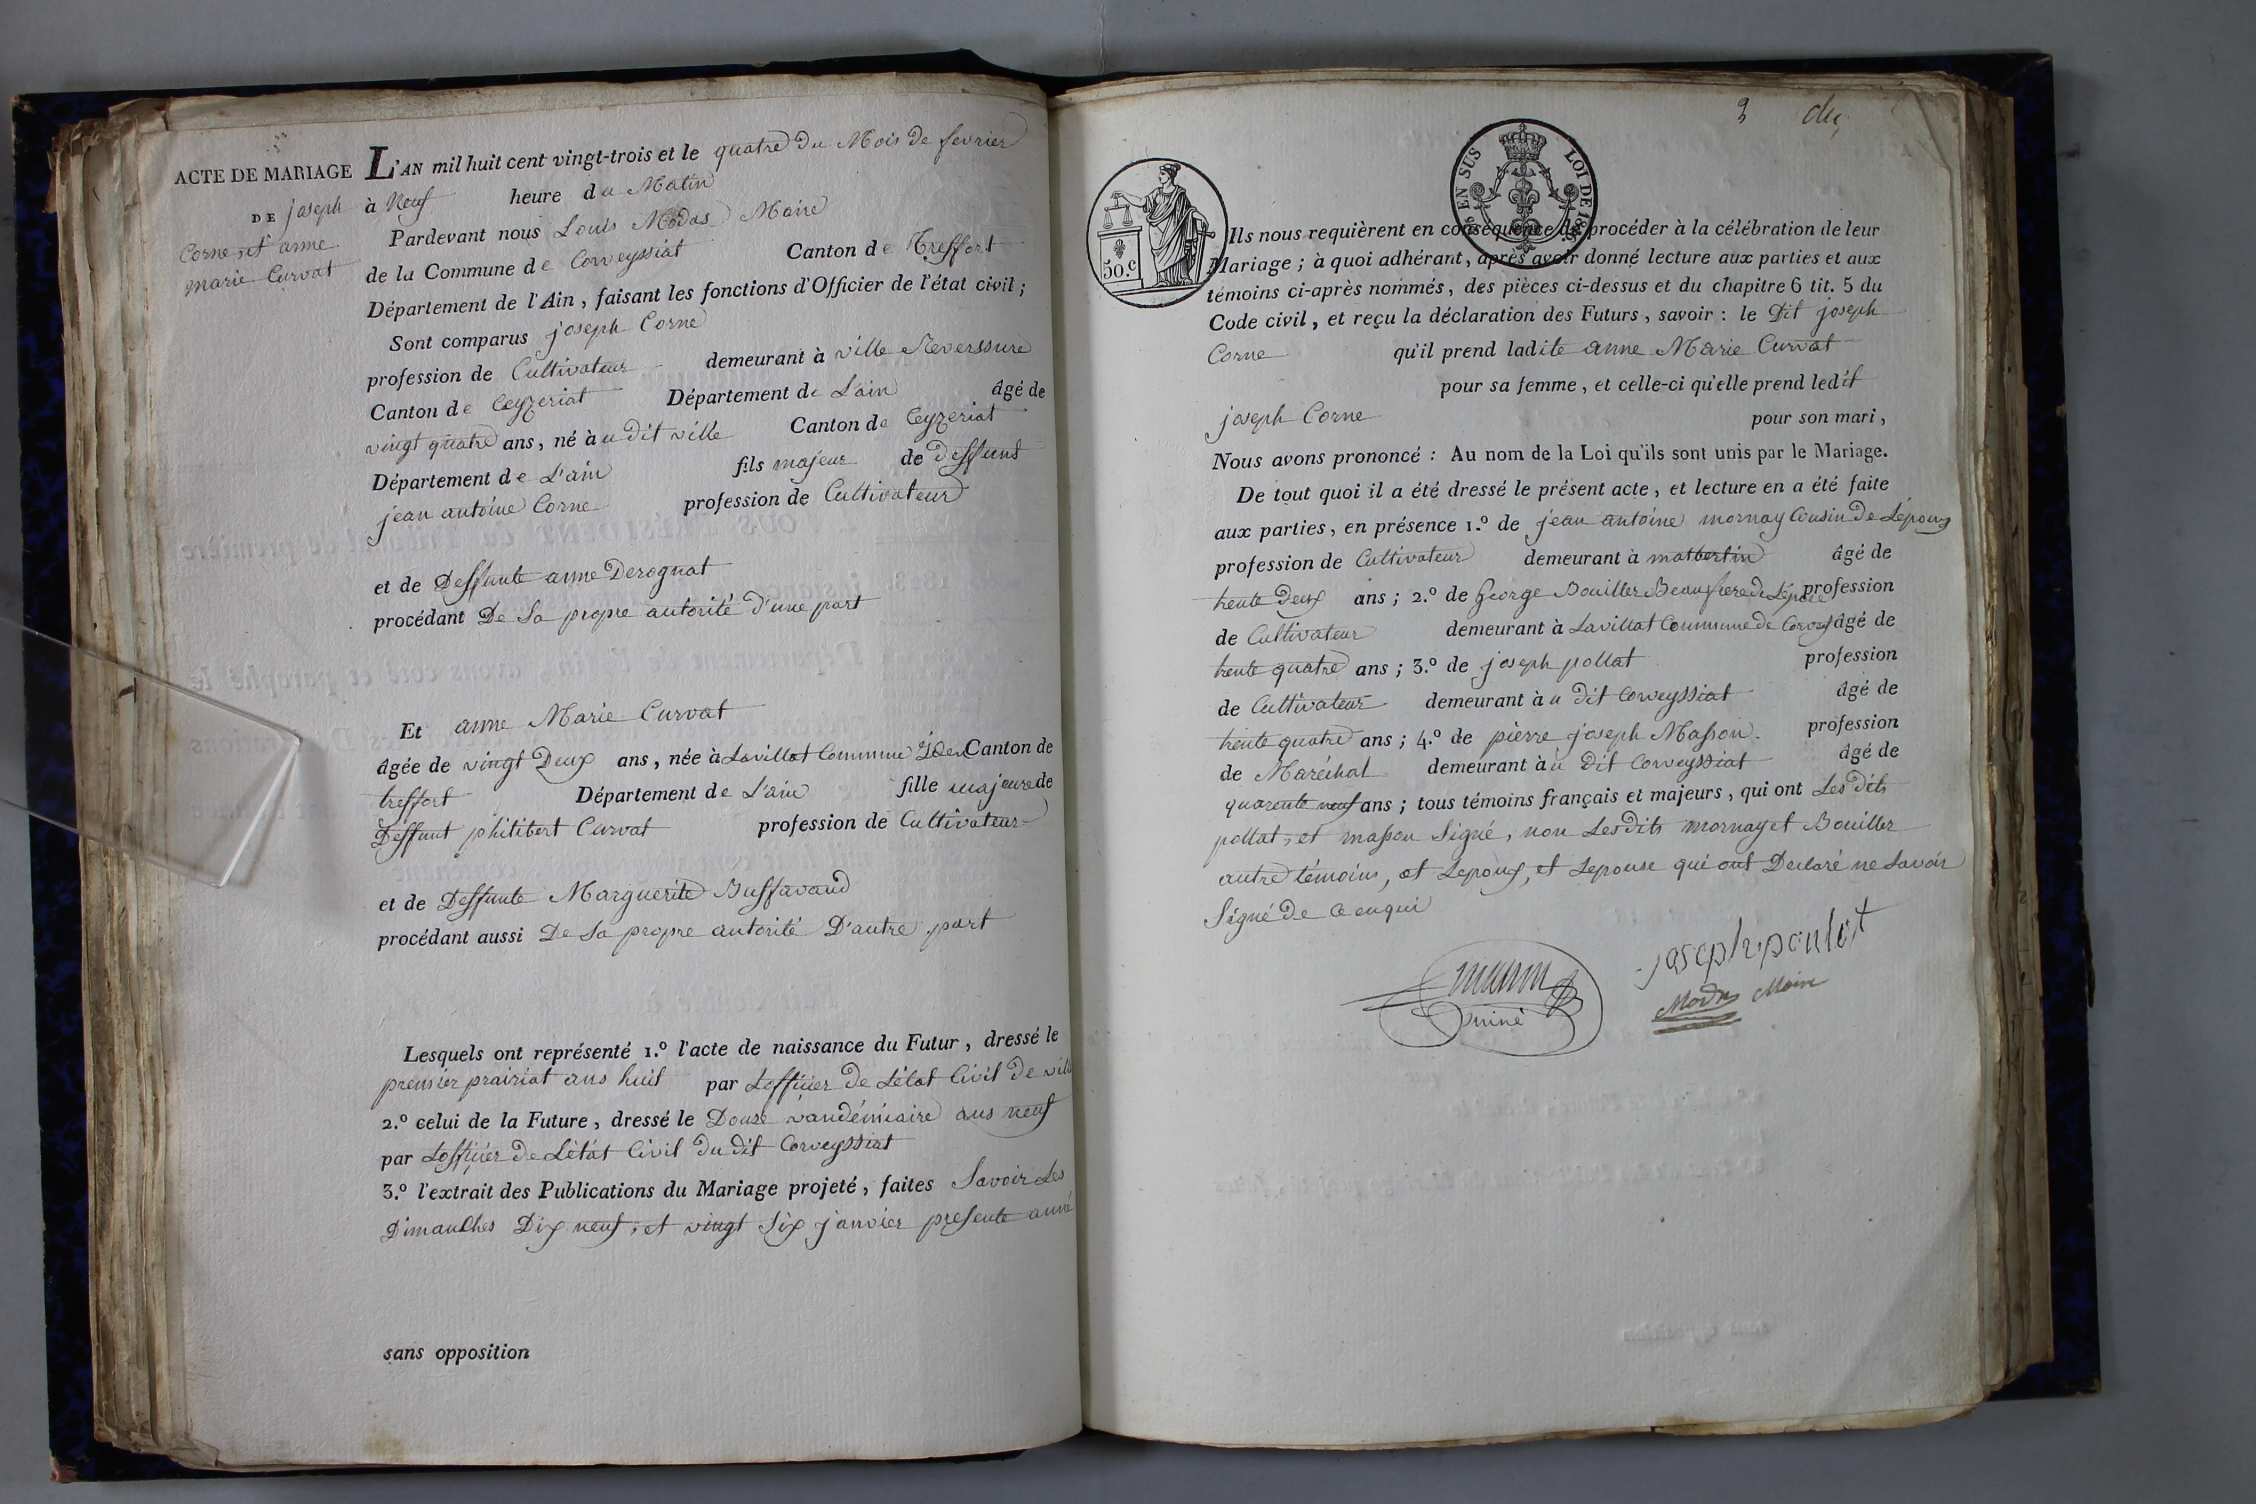 ACTE DE MARIAGE
DE joseph
Corne, et anne
marie Curvat
L'AN mil huit cent vingt-trois et le quatre du Mois de fevrier
à Neuf heure du Matin
Pardevant nous Louis Modas Maire
de la Commune de Corveyssiat Canton de Treffort
Département de l'Ain, faisant les fonctions d'Officier de l'état civil;
Sont comparus joseph Corne
profession de Cultivateur demeurant à ville Reverssure
Canton de Ceyzeriat Département de L'ain âgé de
vingt quatre ans, né à u dit ville Canton de Ceyzeriat
Département de L'ain fils majeur de deffunt
jean antoine Corne profession de Cultivateur
et de Deffunte anne Derognat
procédant De Sa propre autorité d'une part
Et anne Marie Curvat
âgée de vingt Deux ans, née à Lavillat Commune Canton de
treffort Département de L'ain fille majeure de
Deffunt philibert Curvat profession de Cultivateur
et de Deffunte Marguerite Buffavand
procédant aussi De Sa propre autorité D'autre part
Lesquels ont représenté 1.º l'acte de naissance du Futur, dressé le
premier prairiat ans huit par Lofficier de Létat Civil de ville
2.º celui de la Future, dressé le Douze vandémiaire ans neuf
par Lofficier de Létat Civil du dit Corveyssiat
3.º l'extrait des Publications du Mariage projeté, faites Savoir Les
Dimanches Dix neuf, et vingt Six janvier presente anné
sans opposition
3
EN SUS LOI DE 18
50.c
Ils nous requièrent en conséquence de procéder à la célébration de leur
Mariage; à quoi adhérant, après avoir donné lecture aux parties et aux
témoins ci-après nommés, des pièces ci-dessus et du chapitre 6 tit. 5 du
Code civil, et reçu la déclaration des Futurs, savoir: le Dit joseph
Corne qu'il prend ladite anne Marie Curvat
pour sa femme, et celle-ci qu'elle prend ledit
joseph Corne pour son mari,
Nous avons prononcé: Au nom de la Loi qu'ils sont unis par le Mariage.
De tout quoi il a été dressé le présent acte, et lecture en a été faite
aux parties, en présence 1.º de jean antoine mornay Cousin de Lepoux
profession de Cultivateur demeurant à âgé de
trente Deux ans; 2.º de George Bouiller Beaufrere de Lepouse profession
de Cultivateur demeurant à Lavillat Commune de âgé de
trente quatre ans; 3.º de joseph pollat profession
de Cultivateur demeurant à u dit Corveyssiat âgé de
trente quatre ans; 4.º de pièrre joseph Masson profession
de Maréchal demeurant à u dit Corveyssiat âgé de
quarente neuf ans; tous témoins français et majeurs, qui ont Les Dits
pollat, et masson Signé, non Lesdits mornay et Bouiller
autre témoins, et Lepoux, et Lepouse qui ont Declaré ne Savoir
Signé De Ce enqui
joseph poulet
Modas Maire